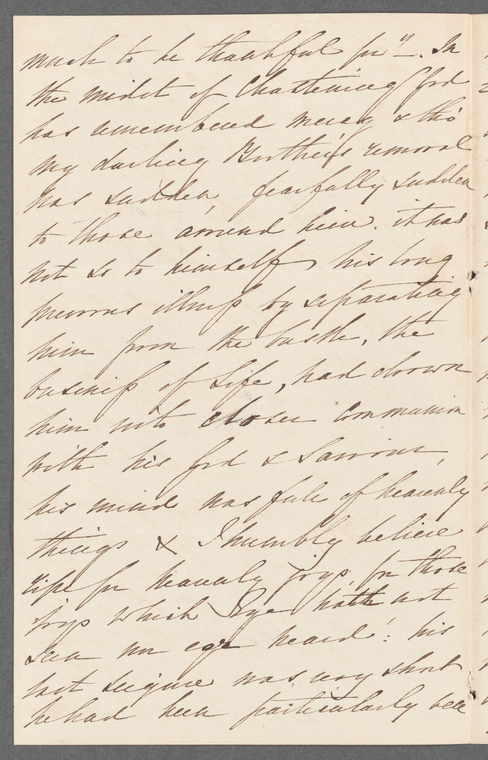 much to be thankful for". In
the midst of Chastening God
has remembered mercy & tho'
my darling Brother's removal
was sudden, fearfully sudden
to those around him. it was
not so to himself, his long
previous illness by separating
him from the bustle, the
business of Life, had drawn
him into closer Communion
with his God & Saviour,
his mind was full of heavenly
things & I humbly believe
ripe for heavenly joys, for those
joys which Eye hath not
seen nor ear heard! his
last seizure was very short
he had been particularly well